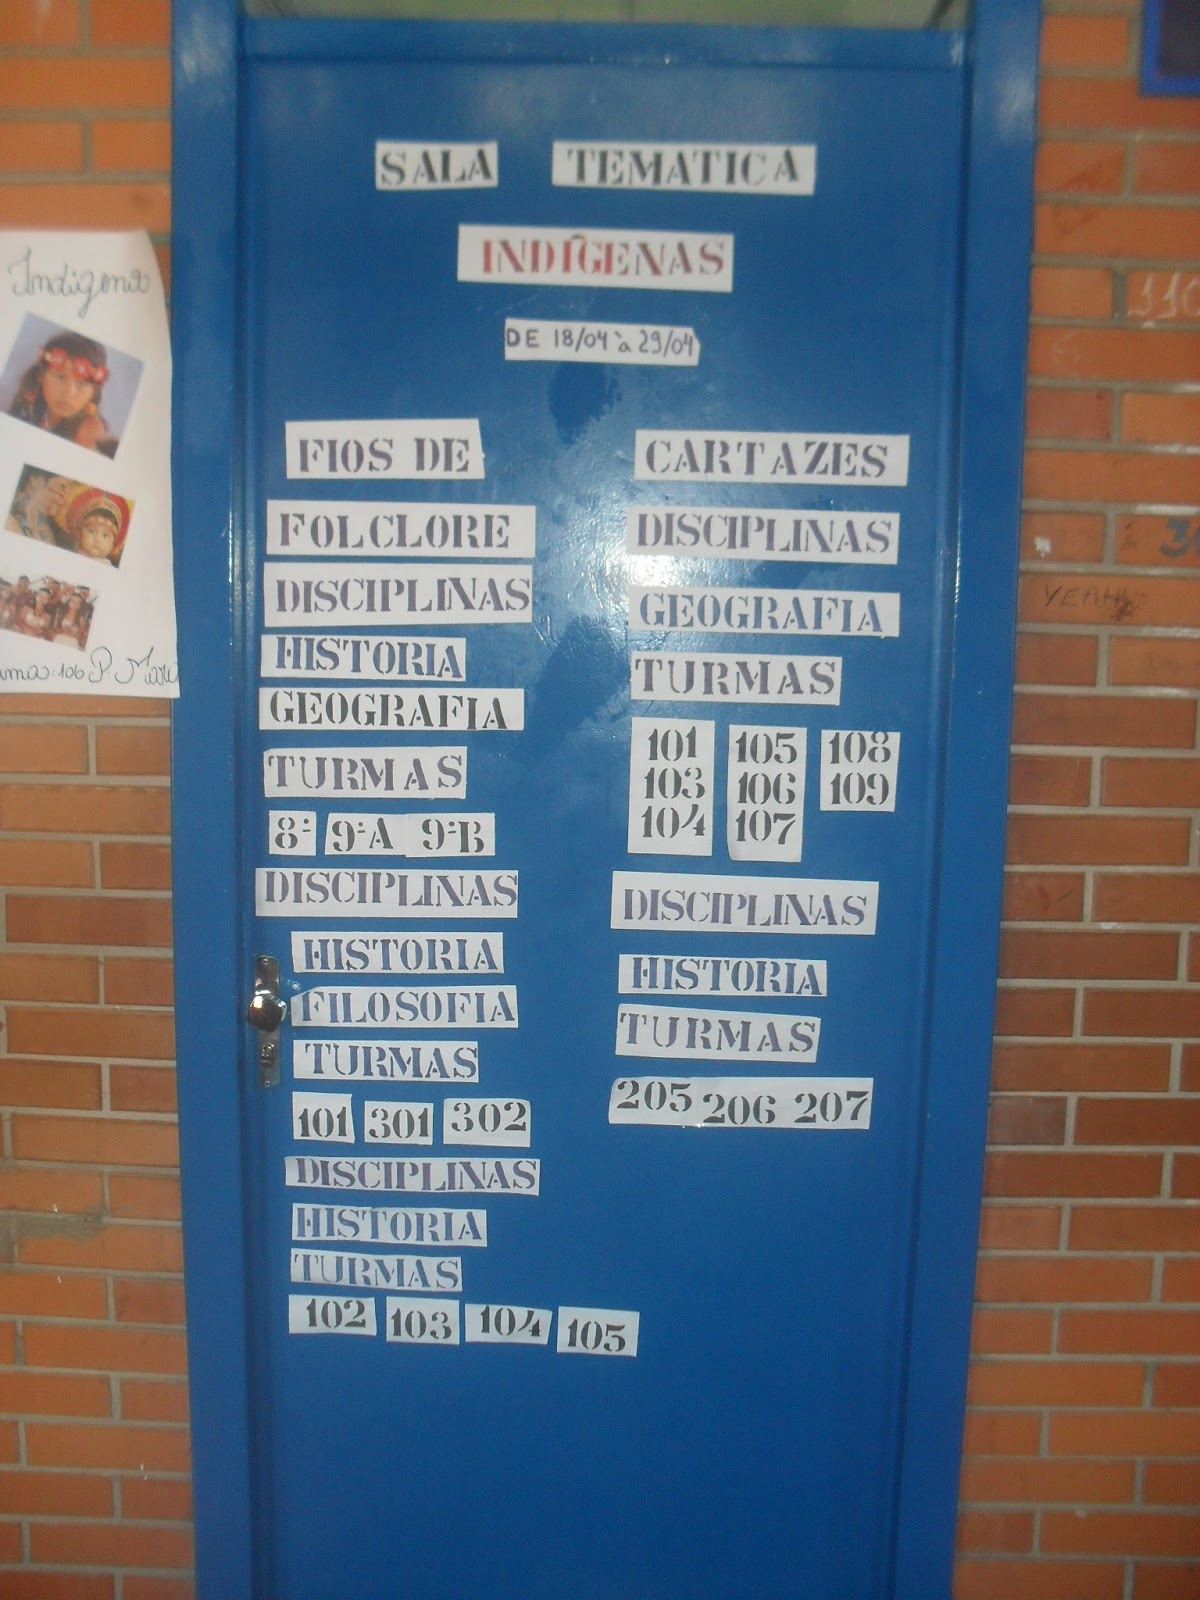 SALA TEMATICA
INDÍGENAS
DE 18/04 à 29/04
FIOS DE
FOLCLORE
DISCIPLINAS
HISTORIA
GEOGRAFIA
TURMAS
8ª 9ªA 9ªB
DISCIPLINAS
HISTORIA
FILOSOFIA
TURMAS
101 301 302
DISCIPLINAS
HISTORIA
TURMAS
102 103 104 105
CARTAZES
DISCIPLINAS
GEOGRAFIA
TURMAS
101 105 108
103 106 109
104 107
DISCIPLINAS
HISTORIA
TURMAS
205 206 207
Indígena
106 P.
110
YEAH